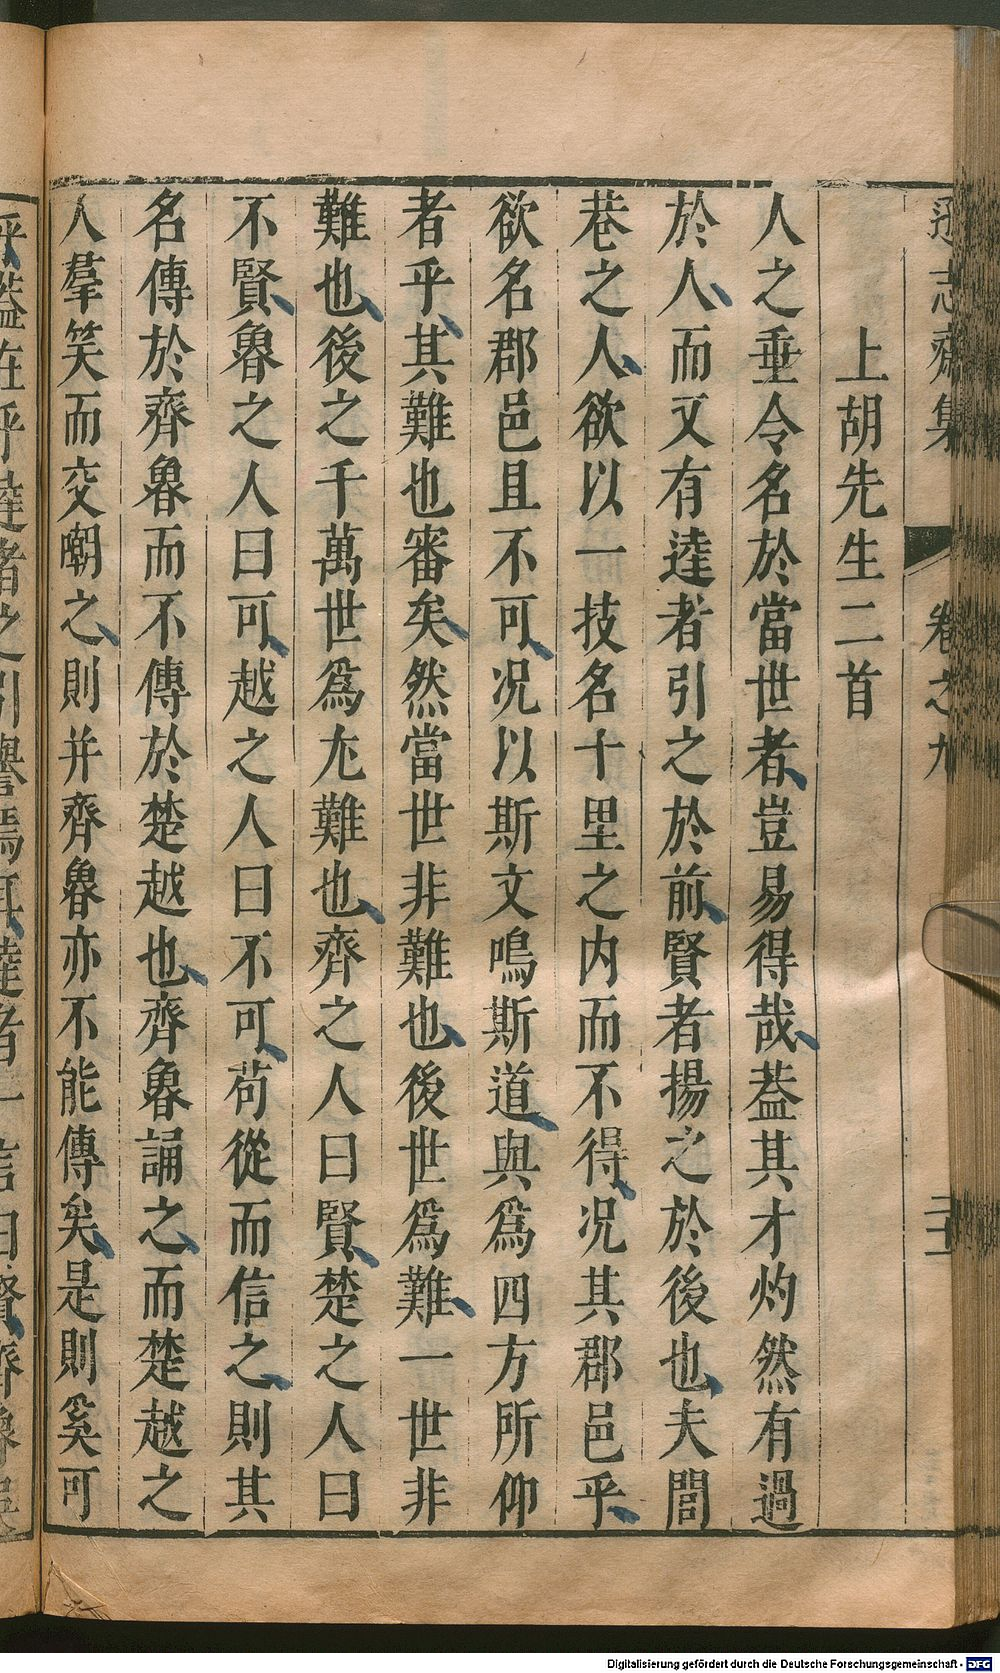 遜志齋集 卷之九 二十一
上胡先生二首
人之垂令名於當世者豈易得哉葢其才灼然有過
於人而又有逹者引之於前賢者揚之於後也夫閭
巷之人欲以一技名十里之内而不得况其郡邑乎
欲名郡邑且不可况以斯文鳴斯道與爲四方所仰
者乎其難也審矣然當世非難也後世爲難一世非
難也後之千萬世爲尢難也齊之人曰賢楚之人曰
不賢魯之人曰可越之人曰不可苟從而信之則其
名傳於齊魯而不傳於楚越也齊魯誦之而楚越之
人羣笑而交嘲之則并齊魯亦不能傳矣是則奚可
乎葢在乎逹者之引譽焉耳逹者一言曰賢齊魯
Digitalisierung gefördert durch die Deutsche Forschungsgemeinschaft - DFG